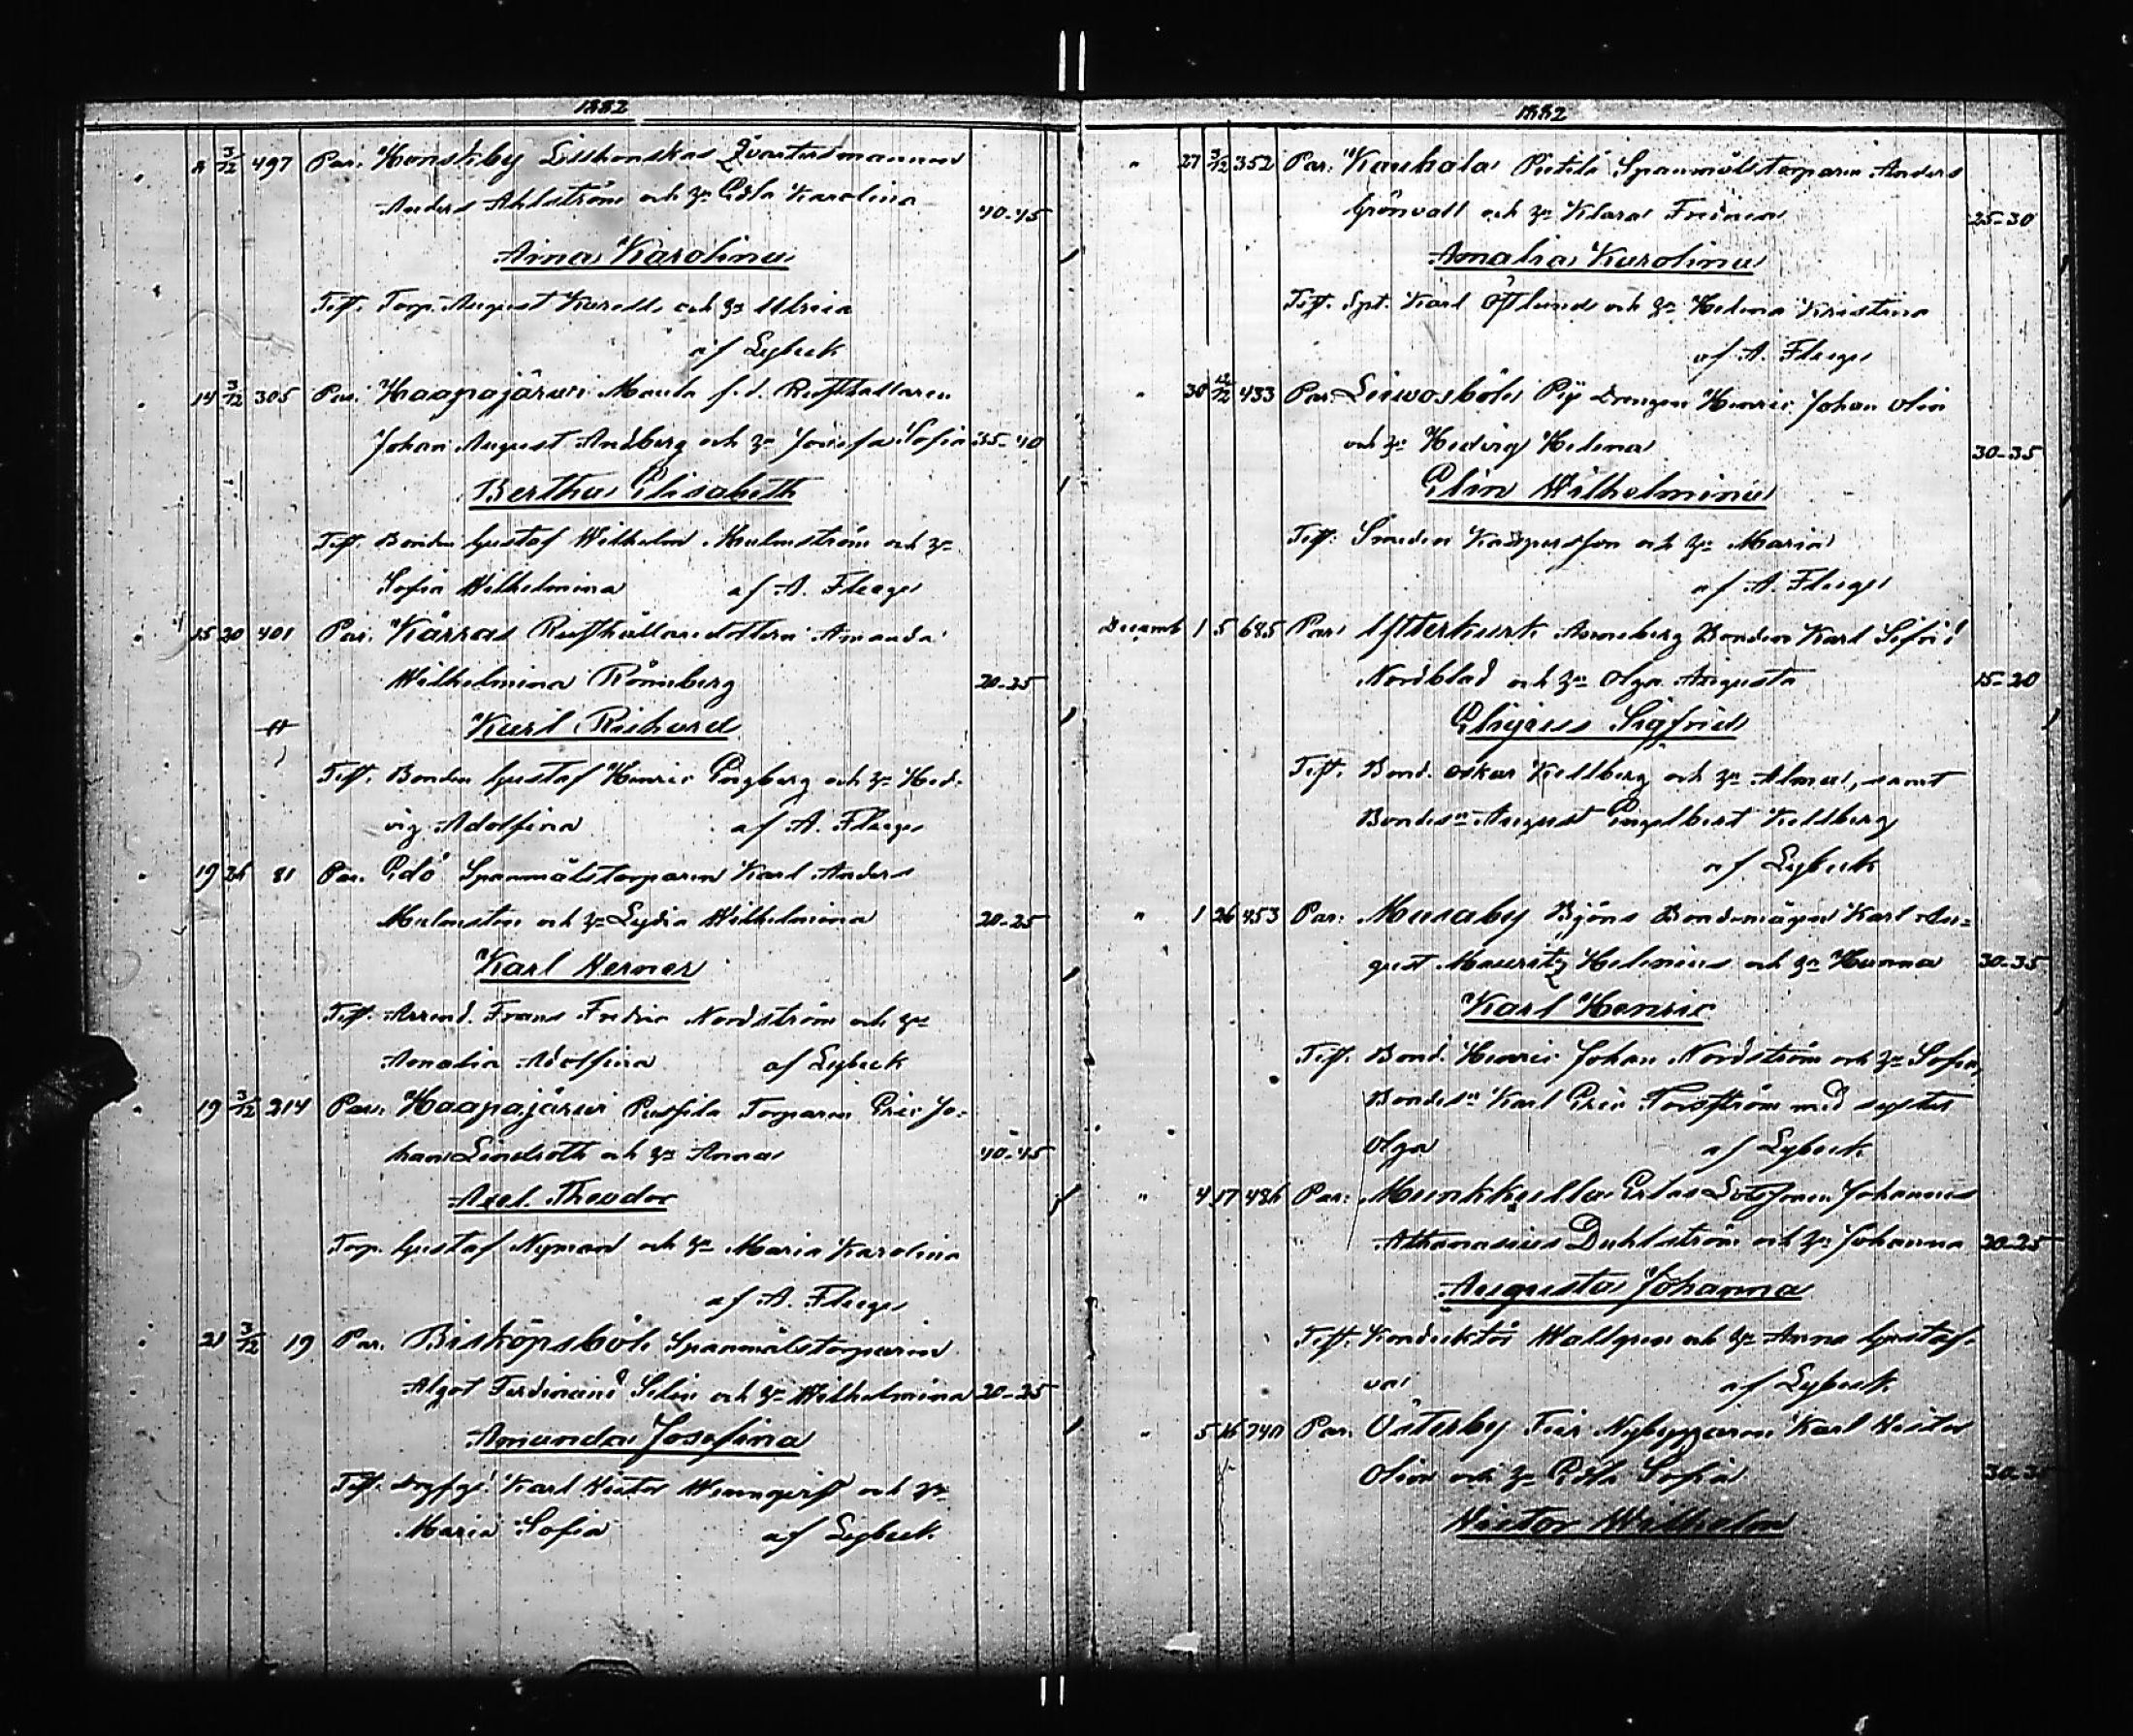 1882
8 3/12 497 Par. Konskby Lisskonskas Qvartersmannen
Anders Ahlström och h:u Edla Karolina 40-45
Aina Karolina
Test. Torp. August Karell och h:u Ulrica
af Lybeck
14 3/12 305 Par. Haapajärwi Maula f.d. Rusthållaren
Johan August Andberg och h:u Josefa Sofia 35-40
Bertha Elisabeth
Test. Bonden Gustaf Wilhelm Malmström och h:u
Sofia Wilhelmina af A. Fleege
15 20 401 Par. Kärras Rusthållaredottern Amanda
Wilhelmina Rönnberg 20-25
Karl Richard
Test. Bonden Gustaf Henric Engberg och h:u Hed-
vig Adolfina af A. Fleege
19 26 81 Par. Edö Spannmålstorparen Karl Anders
Malmsten och h:u Lydia Wilhelmina 20-25
Karl Werner
Test. Arrend. Frans Fredric Nordström och h:u
Amalia Adolfina af Lybeck
19 3/12 214 Par. Haapajärwi Torparen Eric Jo-
han Lindroth och h:u Anna 40-45
Axel Theodor
Torp. Gustaf Nyman och h:u Maria Karolina
af A. Fleege
21 3/12 19 Par. Biskopsböle Spannmålstorparen
Algot Ferdinand Selin och h:u Wilhelmina 20-25
Amanda Josefina
Test. Karl Victor Wennqvist och h:u
Maria Sofia af Lybeck
1882
" 27 3/12 352 Par. Kauhala Pietilä Spannmålstorparen Anders
Grönvall och h:u Klara 25-30
Amalia Karolina
Test. Spt. Karl Östlund och h:u Helena Kristina
af A. Fleege
" 30 12/12 433 Par. Leiwosböle Pij Drengen Henric Johan Olin
och h:u Hedvig Helena 30-35
Elin Wilhelmina
Test. Smeden Kaspersson och h:u Maria
af A. Fleege
Decemb 1 5 685 Par. Ytterkurk Anneberg Bonden Karl
Nordblad och h:u Olga Augusta 15-20
Sigfrid
Test. Bond. Oskar Kellberg och h:u Alma, samt
Bondes:n August Engelbert Kellberg
af Lybeck
" 1 26 453 Par. Musaby Björs Bondemågen Karl Au-
gust Mauritz Helenius och h:u Hanna 30-35
Karl Henric
Test. Bond. Henric Johan Nordström och h:u Sofia,
Bondes:n Karl Eric Forsström med syster
Olga af Lybeck
" 4 17 486 Par. Munkkulla Erlas Lotsman Johannes
Athanasius Dahlström och h:u Johanna 20-25
Augusta Johanna
Test. Konduktör Wallgren och h:u Anna Gustaf-
va af Lybeck
" 5 16 740 Par. Österby Nybyggaren Karl Victor
Olin och h:u Edla Sofia 30-35
Victor Wilhelm